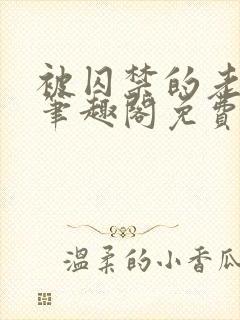 被囚禁的
笔趣阁免费
温柔的小香瓜